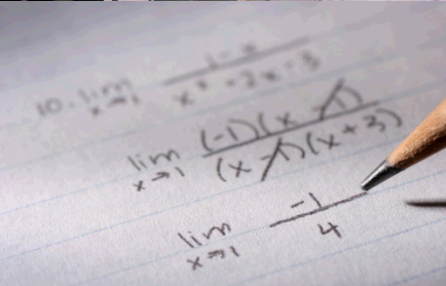 10. lim x→1 1-x / x² - 2x - 3
lim x→1 (-1)(x - 1) / (x - 1)(x + 3)
lim x→1 -1 / 4